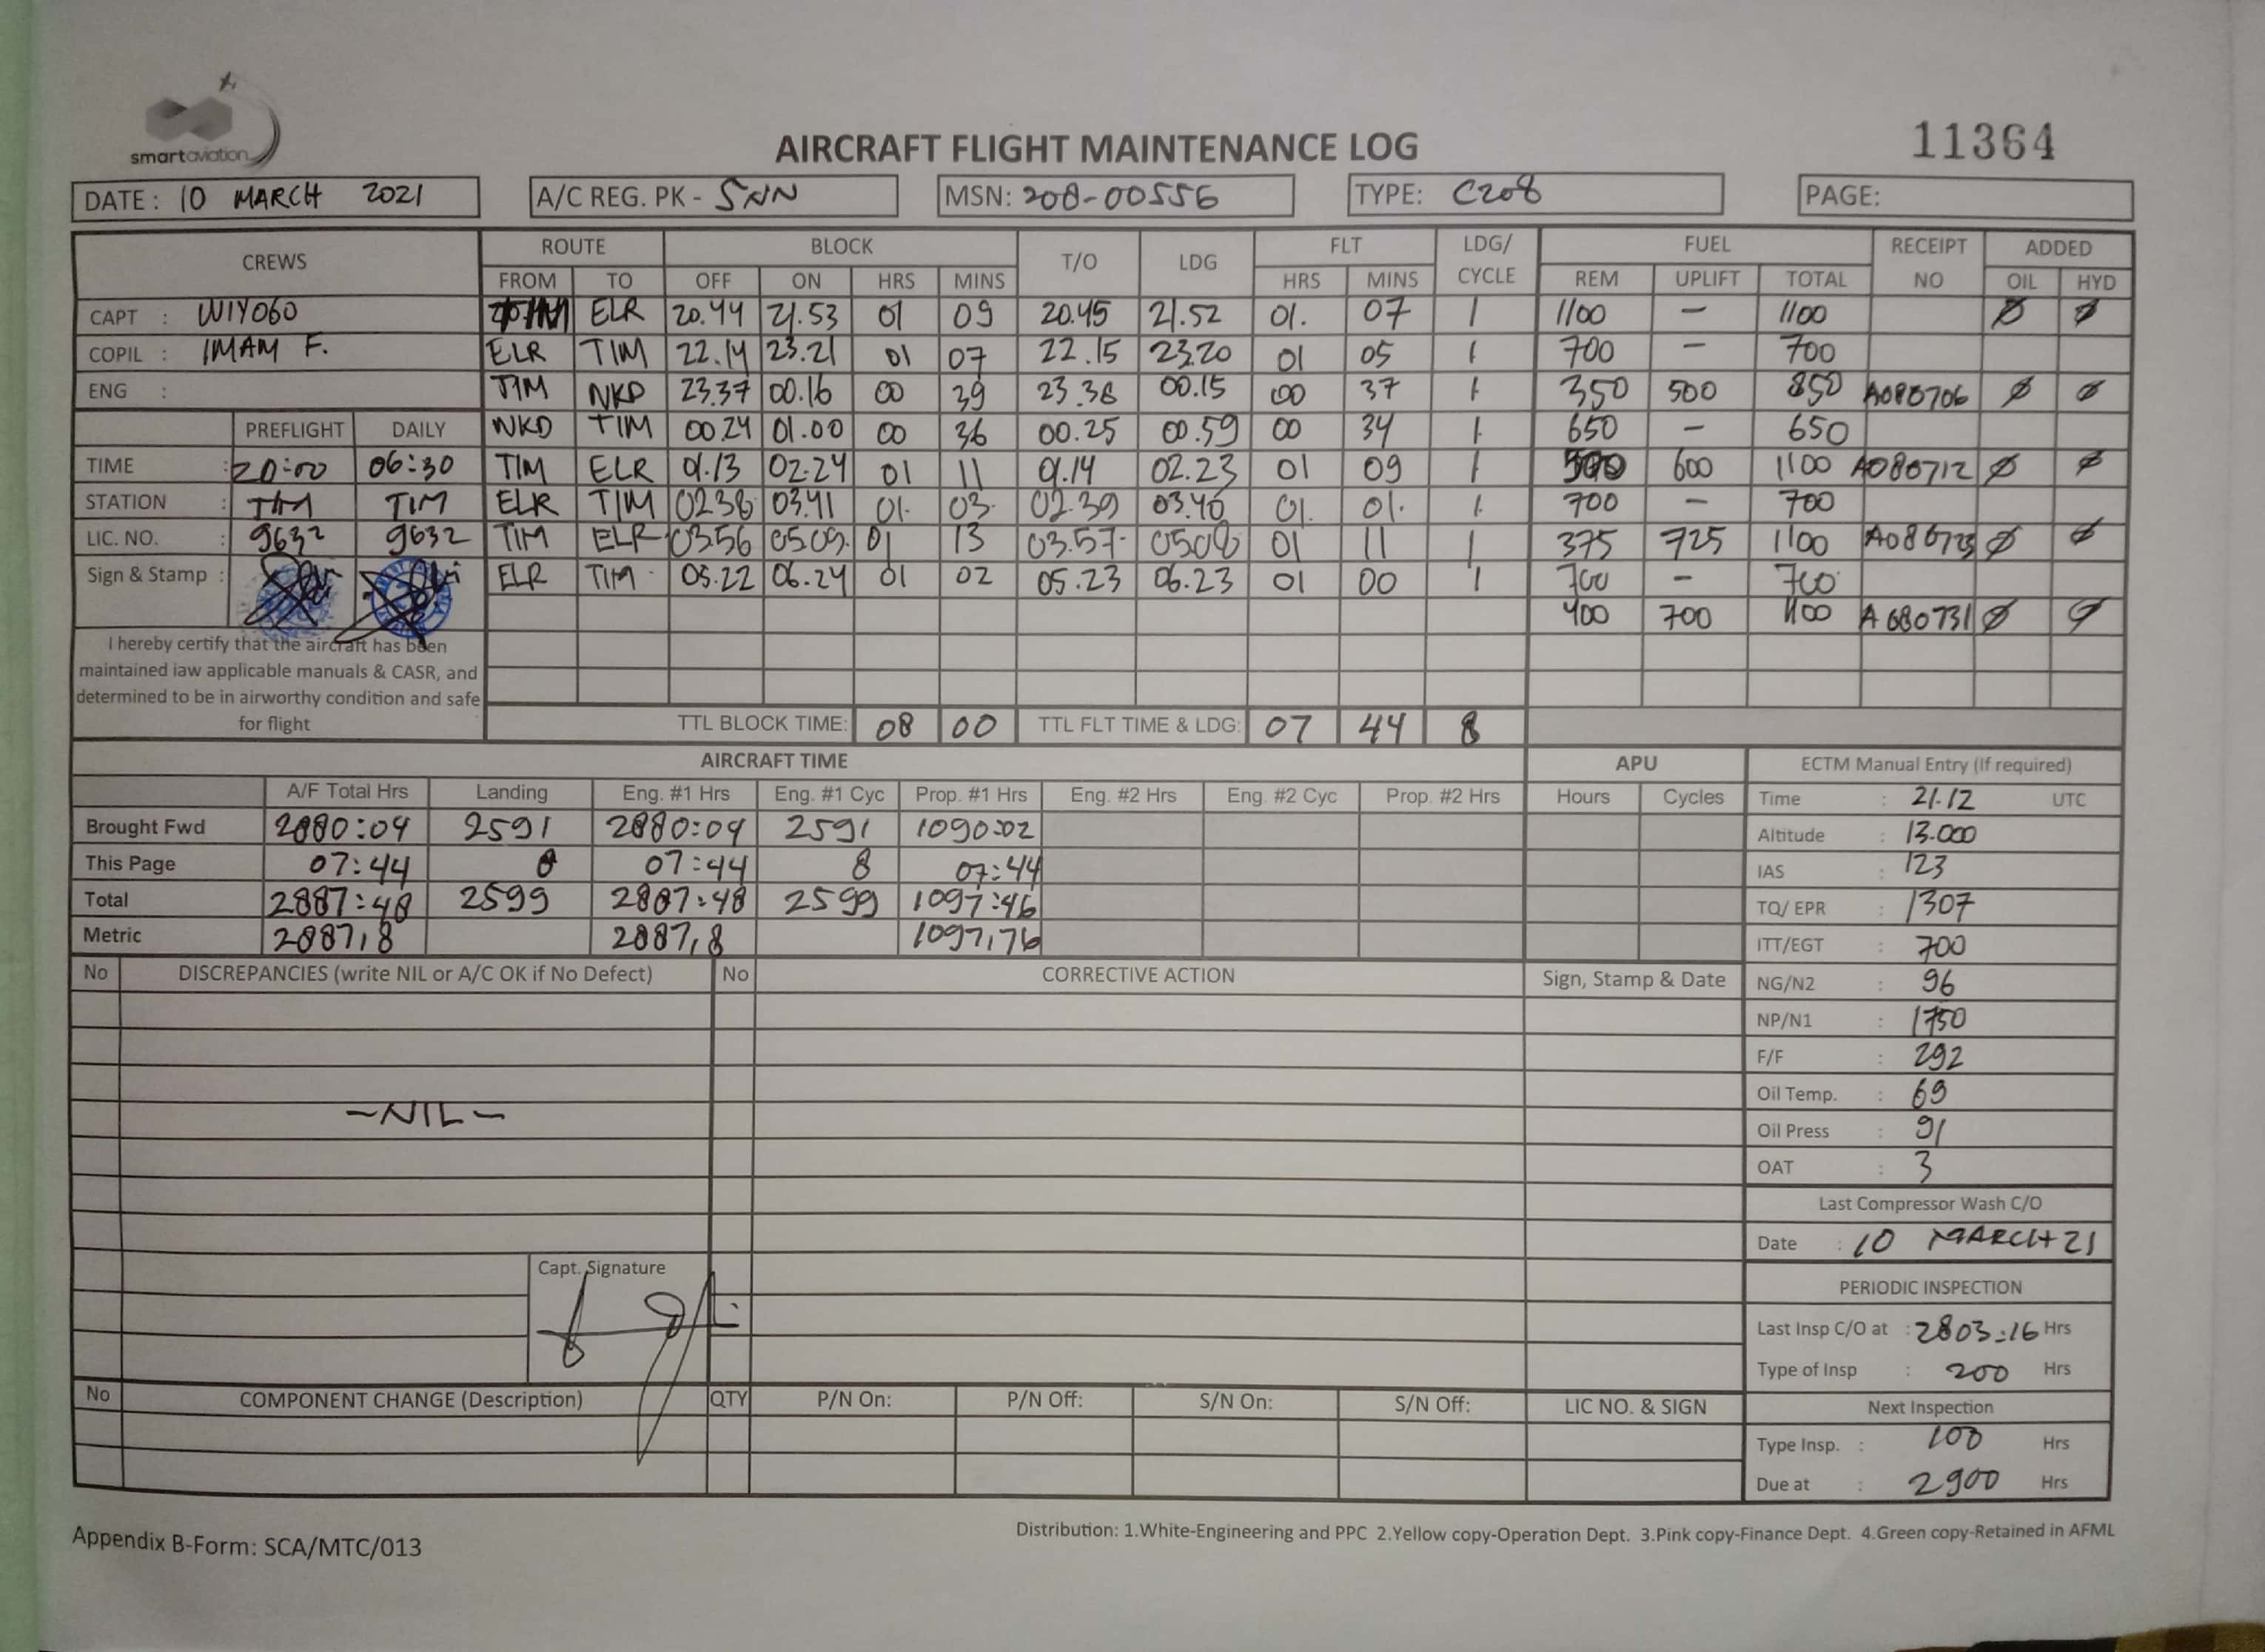 smartaviation
AIRCRAFT FLIGHT MAINTENANCE LOG
11364
DATE : 10 MARCH 2021 A/C REG. PK - SNN MSN: 208-00556 TYPE: C208 PAGE:
CREWS ROUTE BLOCK T/O LDG FLT LDG/ CYCLE FUEL RECEIPT NO ADDED
FROM TO OFF ON HRS MINS HRS MINS REM UPLIFT TOTAL OIL HYD
CAPT : WIYOGO TIM ELR 20.44 21.53 01 09 20.45 21.52 01. 07 1 1100 - 1100 Ø Ø
COPIL : IMAM F. ELR TIM 22.14 23.21 01 07 22.15 23.20 01 05 1 700 - 700
ENG : TIM NKD 23.37 00.16 00 39 23.38 00.15 00 37 1 350 500 850 A080706 Ø Ø
PREFLIGHT DAILY NKD TIM 00.24 01.00 00 36 00.25 00.59 00 34 1 650 - 650
TIME : 20:00 06:30 TIM ELR 01.13 02.24 01 11 01.14 02.23 01 09 1 500 600 1100 A080712 Ø Ø
STATION : TIM TIM ELR TIM 02.38 03.41 01. 03. 02.39 03.40 01. 01. 1. 700 - 700
LIC. NO. : 9632 9632 TIM ELR 03.56 05.09. 01 13 03.57 05.08 01 11 1 375 725 1100 Ø Ø
Sign & Stamp : ELR TIM 05.22 06.24 01 02 05.23 06.23 01 00 1 700 - 700
400 700 1100 A080731 Ø Ø
I hereby certify that the aircraft has been
maintained iaw applicable manuals & CASR, and
determined to be in airworthy condition and safe
for flight
TTL BLOCK TIME: 08 00 TTL FLT TIME & LDG: 07 44 8
AIRCRAFT TIME APU ECTM Manual Entry (If required)
A/F Total Hrs Landing Eng. #1 Hrs Eng. #1 Cyc Prop. #1 Hrs Eng. #2 Hrs Eng. #2 Cyc Prop. #2 Hrs Hours Cycles
Brought Fwd 2880:04 2591 2880:04 2591 1090:02
This Page 07:44 8 07:44 8 07:44
Total 2887:48 2599 2887:48 2599 1097:46
Metric 2887,8 2887,8 1097,76
Time : 21.12 UTC
Altitude : 13.000
IAS : 123
TQ/ EPR : 1307
ITT/EGT : 700
NG/N2 : 96
NP/N1 : 1750
F/F : 292
Oil Temp. : 69
Oil Press : 91
OAT : 3
No DISCREPANCIES (write NIL or A/C OK if No Defect) No CORRECTIVE ACTION Sign, Stamp & Date
-NIL-
Capt. Signature
Last Compressor Wash C/O
Date : 10 MARCH 21
PERIODIC INSPECTION
Last Insp C/O at : 2803:16 Hrs
Type of Insp : 200 Hrs
Next Inspection
Type Insp. : 100 Hrs
Due at : 2900 Hrs
No COMPONENT CHANGE (Description) QTY P/N On: P/N Off: S/N On: S/N Off: LIC NO. & SIGN
Appendix B-Form: SCA/MTC/013
Distribution: 1.White-Engineering and PPC 2.Yellow copy-Operation Dept. 3.Pink copy-Finance Dept. 4.Green copy-Retained in AFML